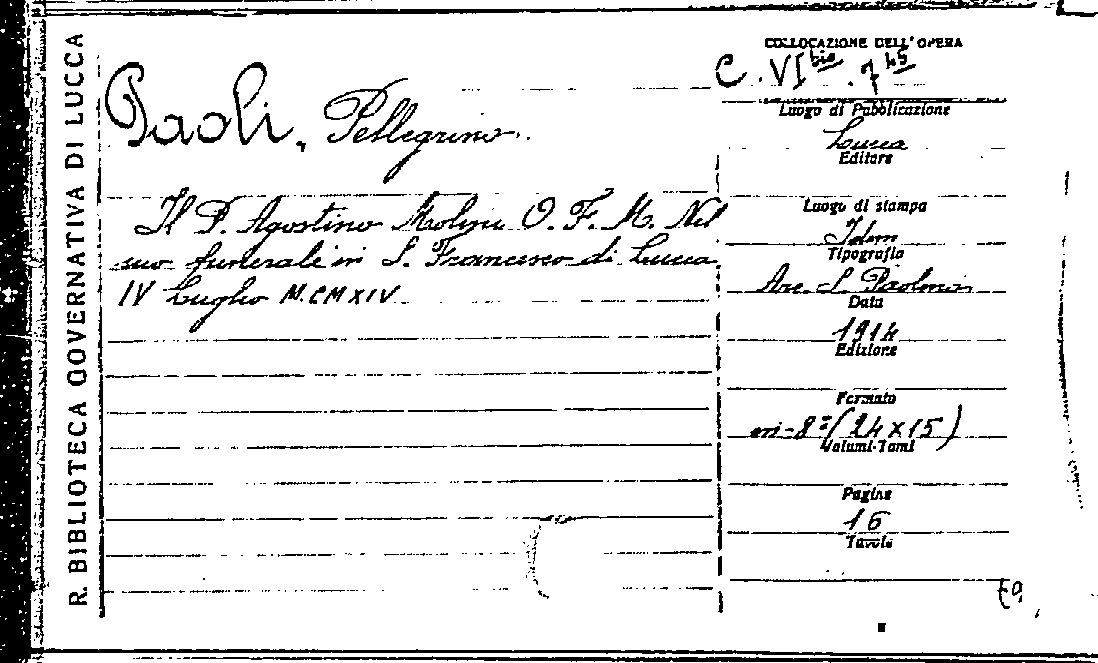 R. BIBLIOTECA GOVERNATIVA DI LUCCA
Paoli, Pellegrino.
Il P. Agostino Molini O. F. M. Nel
suo funerale in S. Francesco di Lucca
IV Luglio M.CMXIV.
COLLOCAZIONE DELL' OPERA
C. VI bis . 7 45
Luogo di Pubblicazione
Lucca
Editore
Luogo di stampa
Idem
Tipografia
Arc. S. Paolino
Data
1914
Edizione
Formato
in-8º (24x15)
Volumi-Tomi
Pagine
16
Tavole